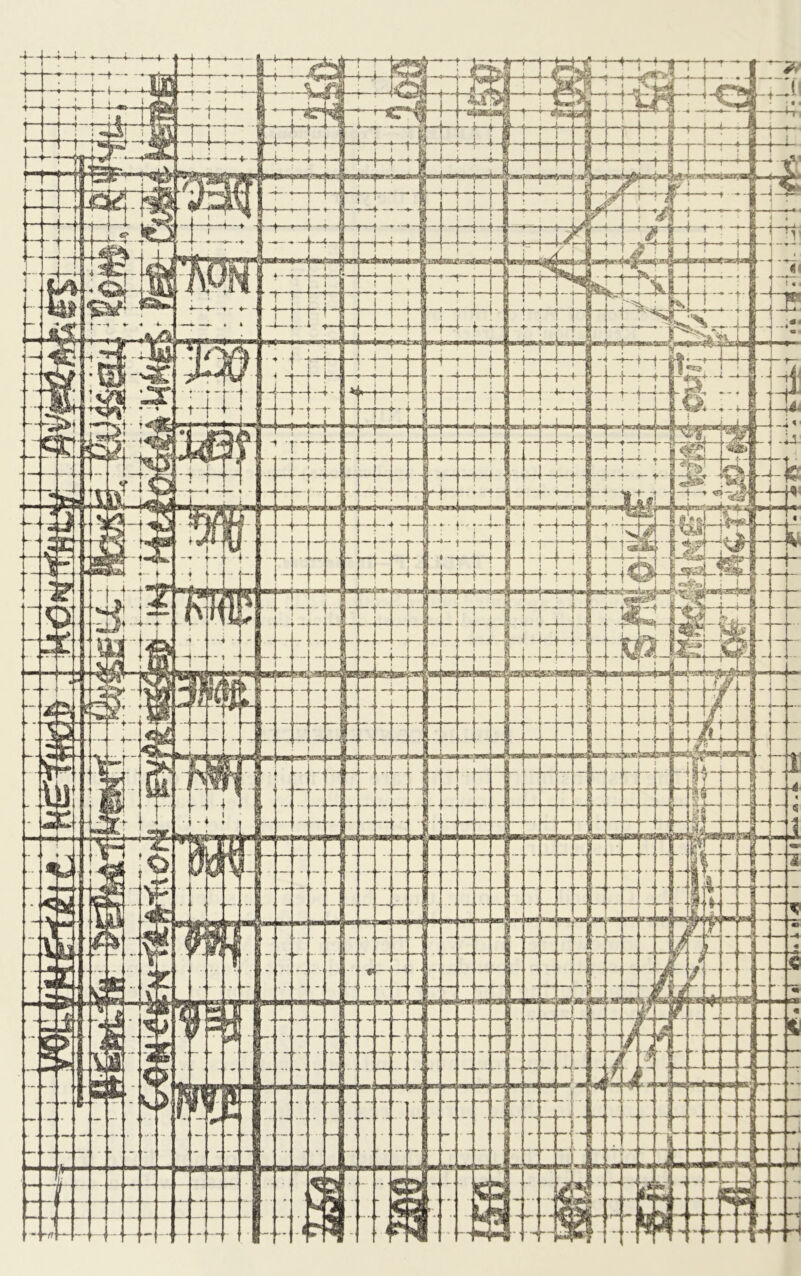 VOLUMETRIC METHOD MONTHLY AVERAGES
HEALTH DEPARTMENT RUSSELL HOUSE, RUSSELL ROAD, RHYL.
CONCENTRATION EXPRESSED IN MICROGRAMMES PER CUBIC METRE
JAN
FEB
MAR
APR
MAY
JUNE
JULY
AUG
SEPT.
OCT.
NOV.
DEC
250
200
150
100
50
0
SMOKE
MACHINE WAS OUT
OF ACTION
250
200
150
100
50
0